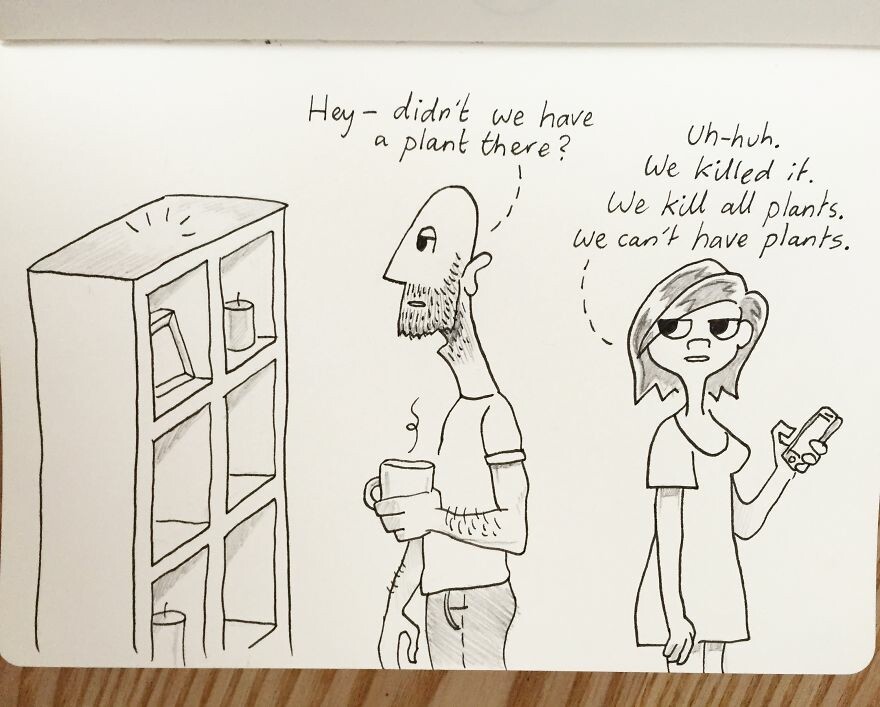 Hey - didn't we have
a plant there?
Uh-huh.
We killed it.
We kill all plants.
We can't have plants.